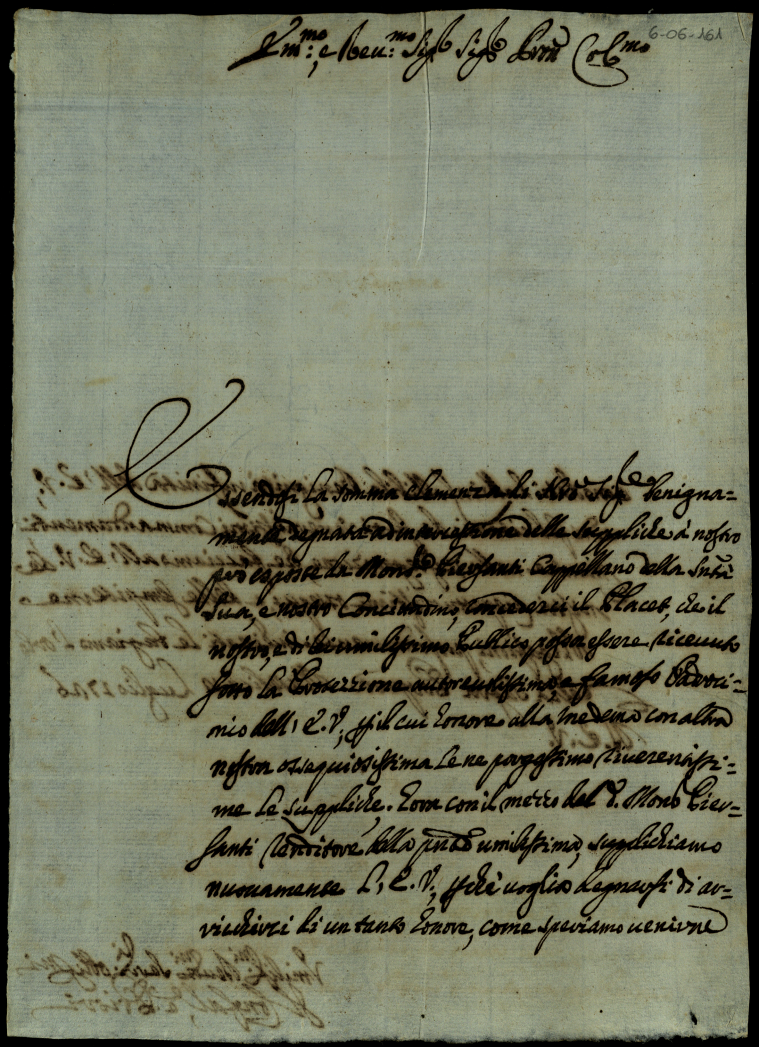 6-06-161
Em:mo, e Reu:mo Sigr Sigr Pron Colmo
Essendosi la somma Clemenza di Nro Sigre benigna=
mente degnata ad intercessione delle suppliche à nostro
però esposte da Monsr Piersanti Cappellano della Sntà
Sua, e nostro Concittadino, concederci il Placet, che il
nostro, e di lei umilissimo Publico possa essere riceuuto
sotto la Protezzione autoreuolissima, e famoso Patroci=
nio dell' E. V., p il cui honore alla medema con altra
nostra ossequiosissima Le ne porgessimo riuerentissi=
me le suppliche. hora con il mezzo del d. Monsr Pier=
santi Renditore della pnte umilissima, supplichiamo
nuouamente L' E. V., pche uoglia degnarsi di ar=
richirci di un tanto honore, come speriamo uenirne